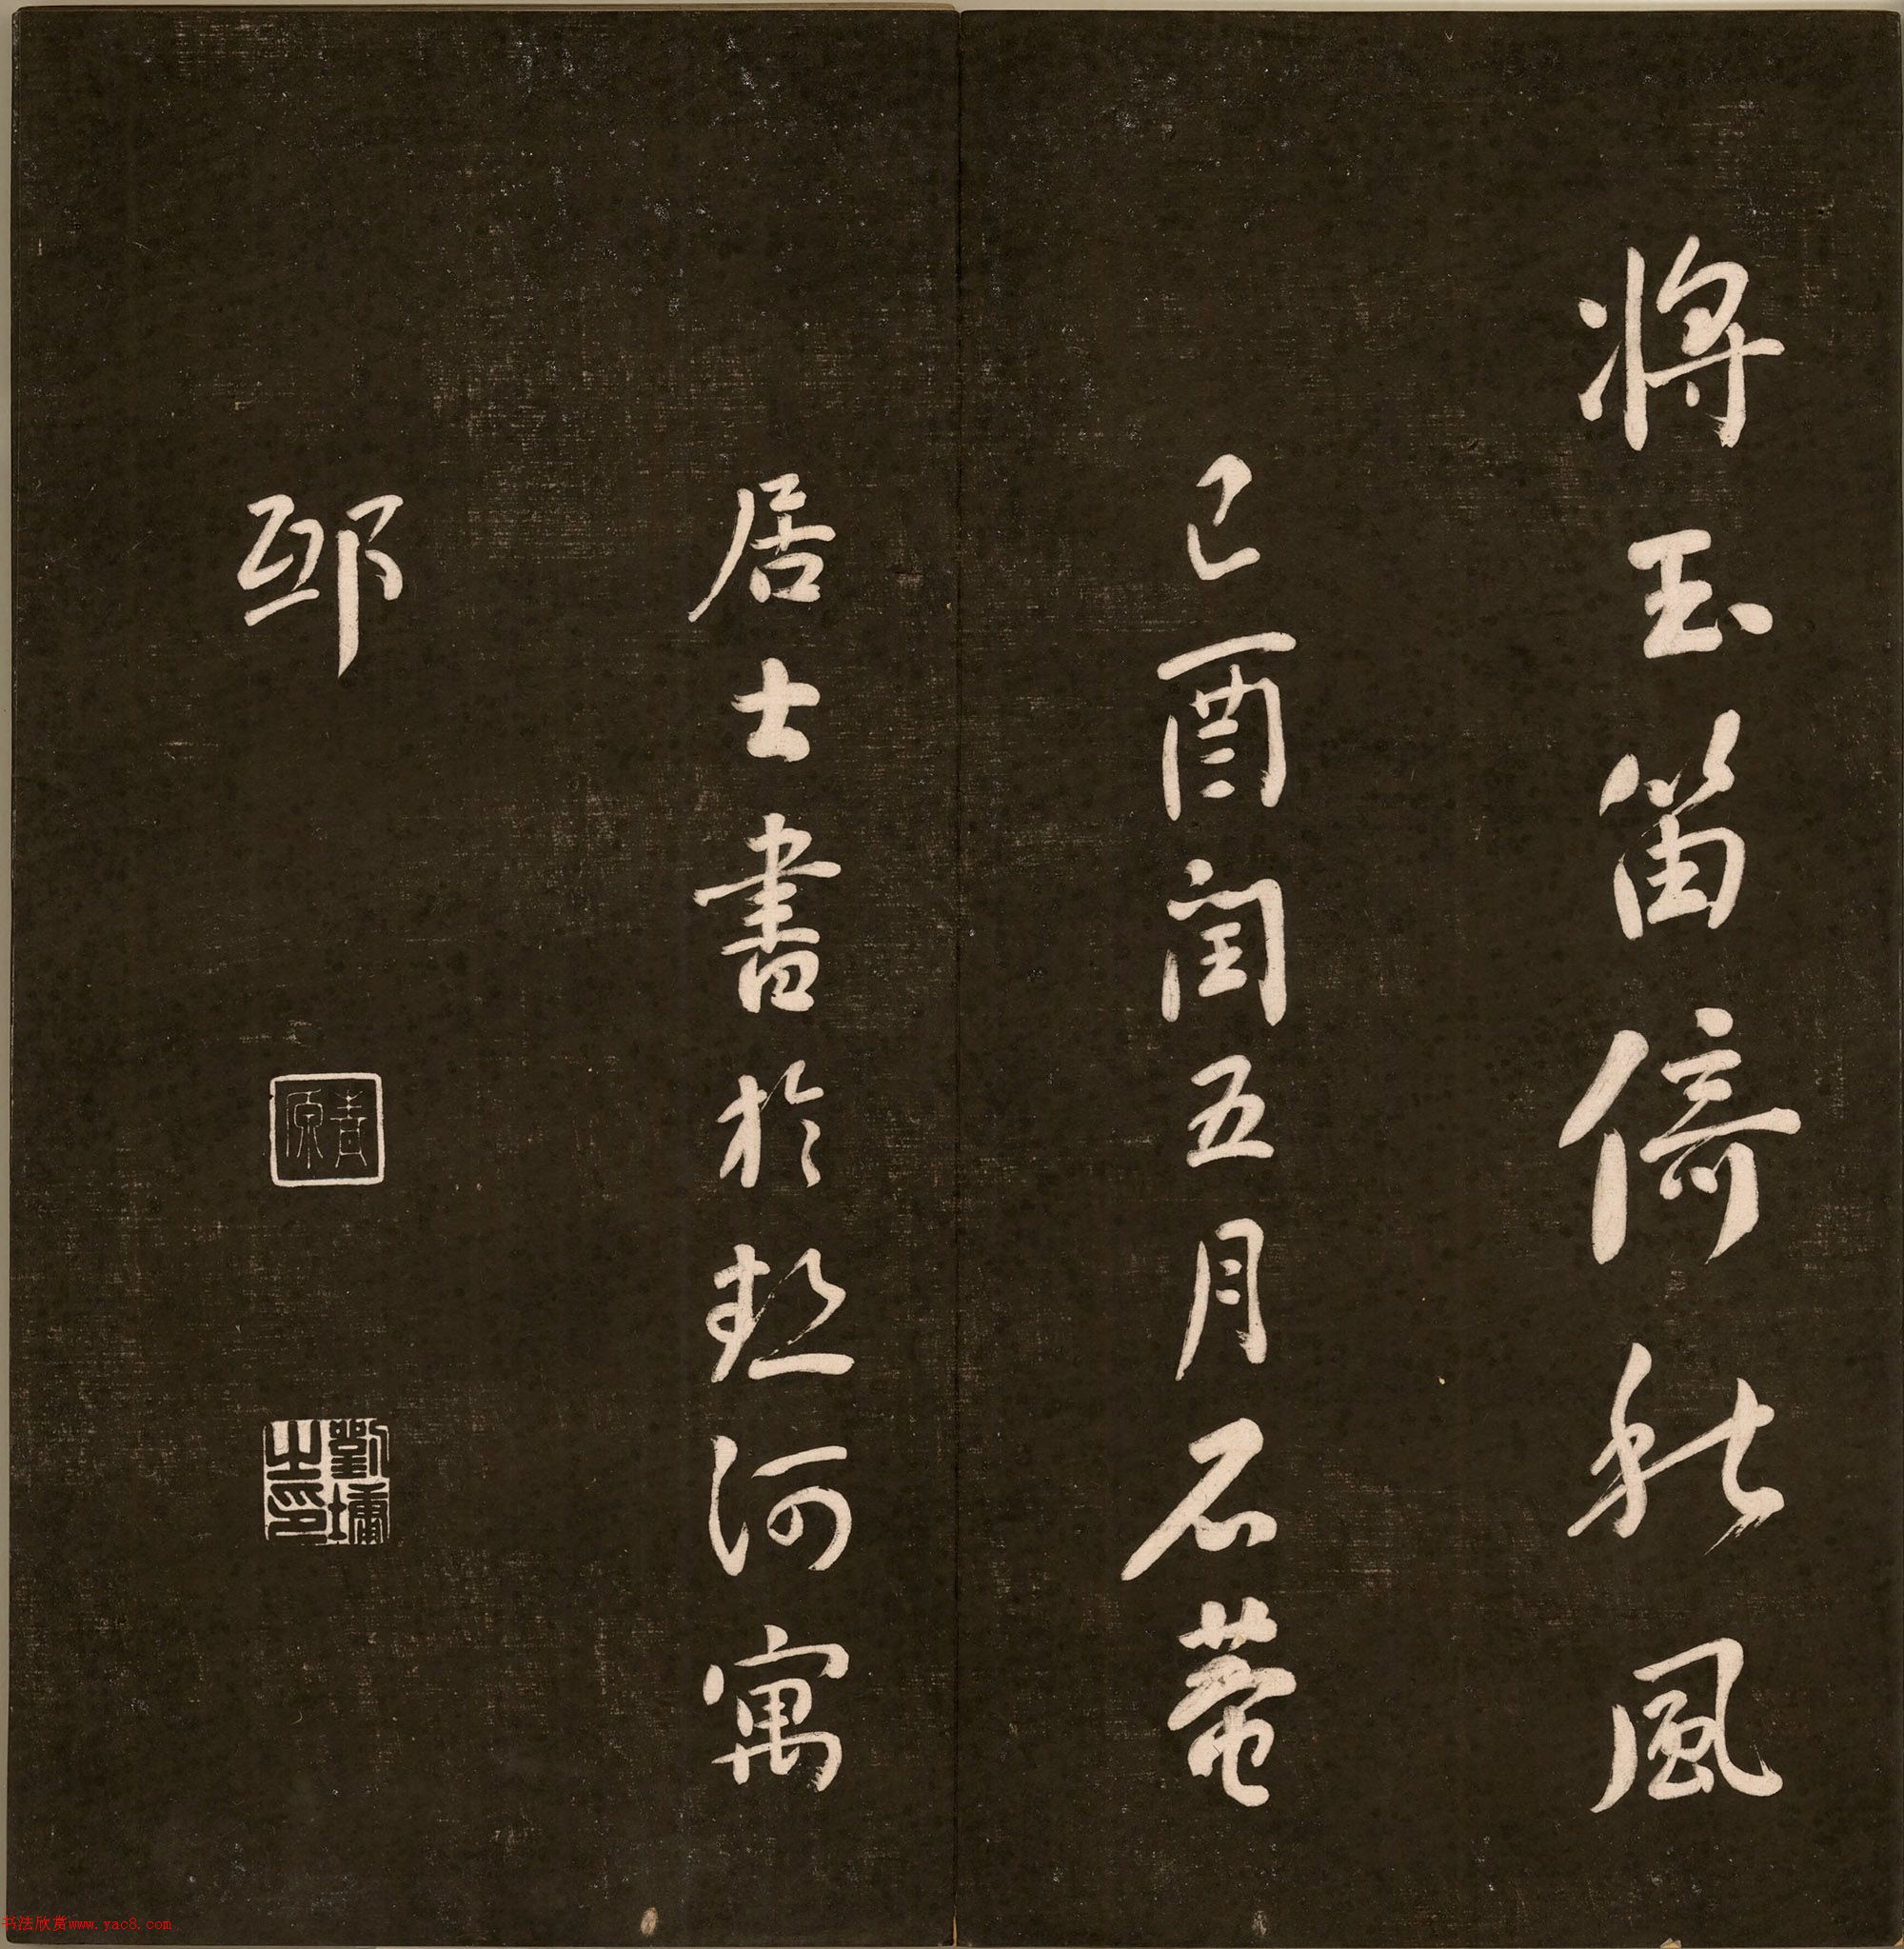 將玉笛倚秋風
己酉閏五月石菴
居士書於熱河寓
邸
青原
劉墉之印
书法欣赏www.yac8.com